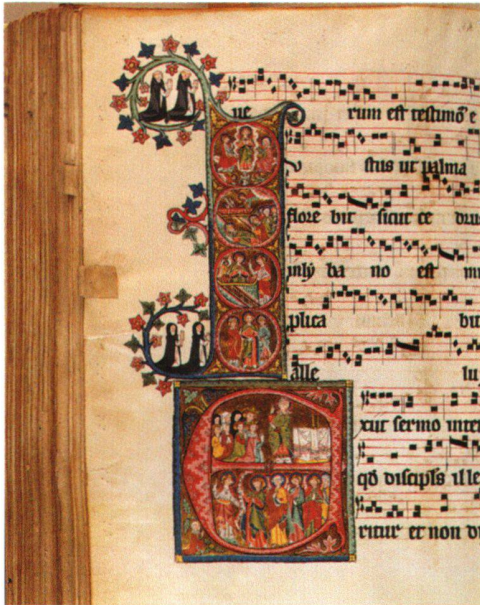 ue rum est testimō e
stus ut palma
flore bit sicut ce dru
in ly ba no est
plica bit
alle lu
xiit sermo inter
qd discipls ille
ritur et non di